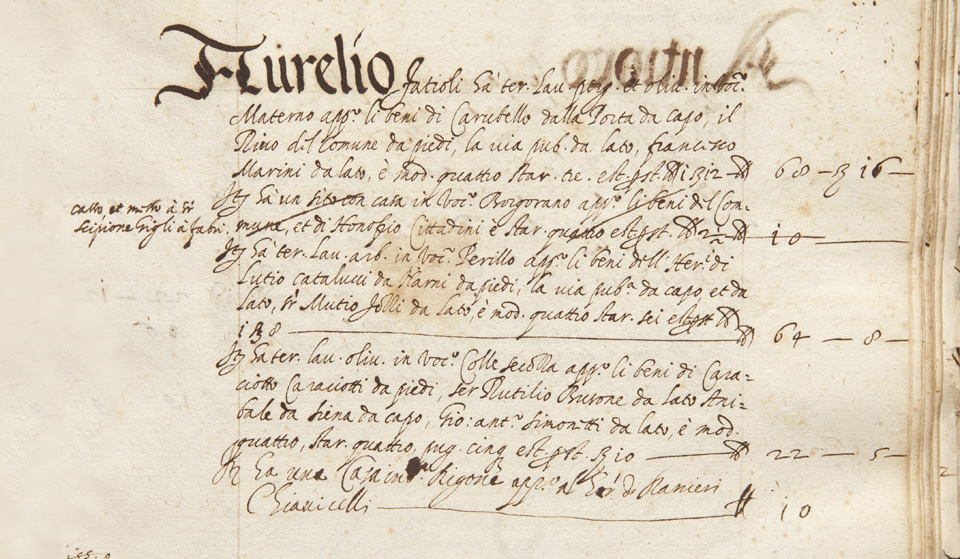 Aurelio Fatioli Ha' ter. Lau. et oliu. in Voc.º
Materno app.º li beni di Carubello dalla Porta da capo, il
Riuo del Comune da piedi, la uia pub. da lato, francisco
Marini da lato, è mod. quattro star. tre. est. 1312 68 – 16 –
Itẽ Ha un sito con casa in Voc.º Borgorano app.º li beni del Com-
casso et messo à Sr
mune, et di Honofrio Cittadini è star. quattro 10
scipione Gigli à
Itẽ Ha' ter. Lau. arb. in Voc.º Perillo app.º li beni dell' Her.i di
Lutio catalucci da Narni da piedi, la uia pub.ª da capo, et da
lato, Sr Mutio Jolli da lato, è mod. quattro star. sei
138 64 – 8 –
Itẽ Ha ter. lau. oliu. in Voc.º Colle secolla app.º li beni di Cara=
ciotto Caraciotti da piedi, ser Rutilio da lato Ani=
bale da siena da capo, Gio: ant.º simonetti da lato, è mod.
quattro, star. quattro, pug. cinq 22 – 5 –
Itẽ Ha una Casa in app.º al Her.i de Ranieri
Chiauicelli 10